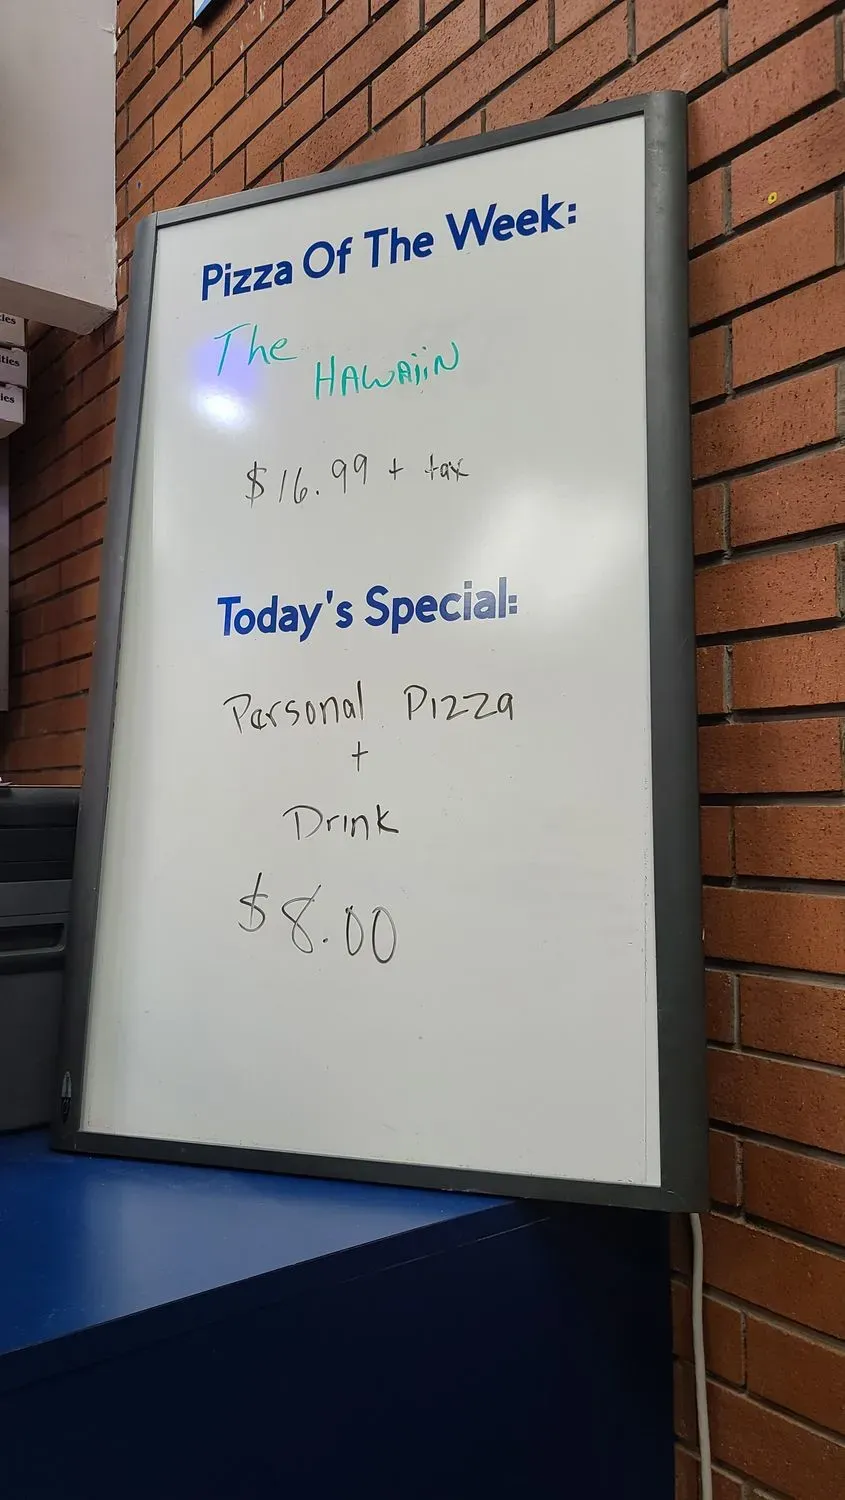 Pizza Of The Week:
The HAWAiiN
$16.99 + tax
Today's Special:
Personal Pizza
+
Drink
$8.00
ies
ities
ies